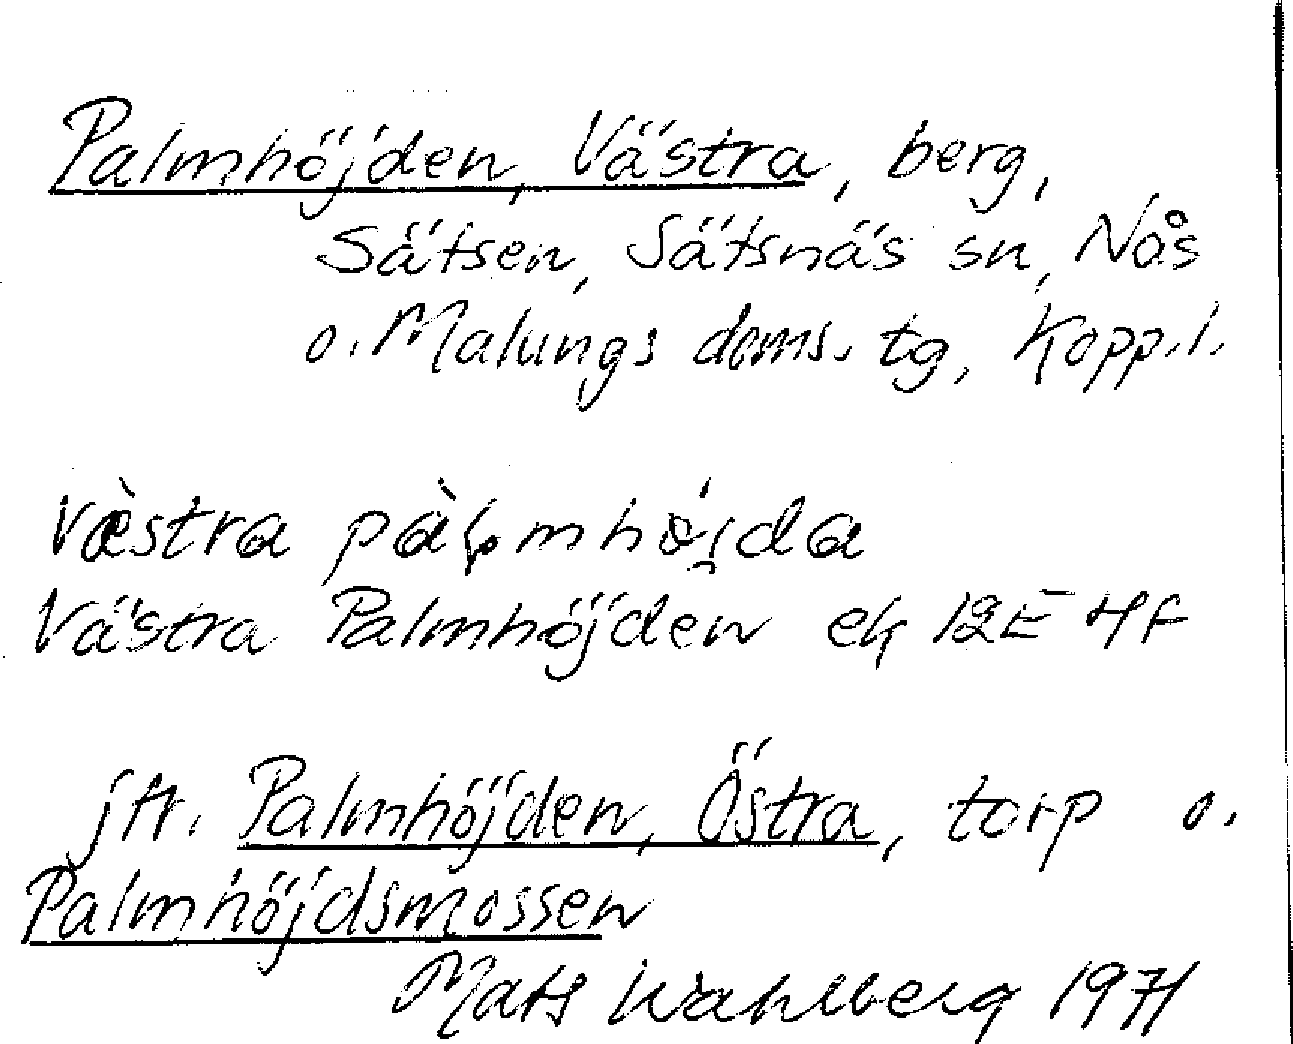 Palmhöjden, Västra, berg,
Sätsen, Sätsnäs sn, Nås
o. Malungs doms. tg, Kopp.l.
Västra Palmhöjden ek 12E 4f
jfr. Palmhöjden, Östra, torp o.
Palmhöjdsmossen
Mats Wahlberg 1971